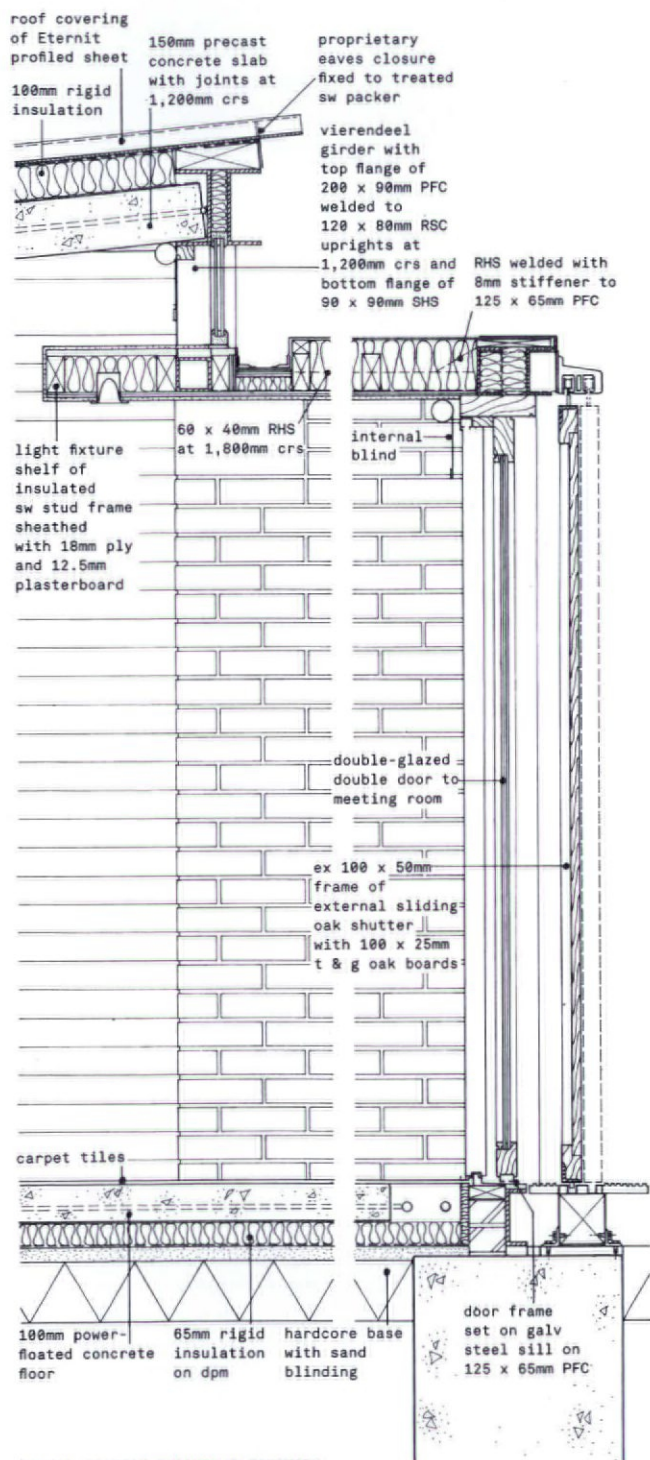 roof covering
of Eternit
profiled sheet
100mm rigid
insulation
150mm precast
concrete slab
with joints at
1,200mm crs
proprietary
eaves closure
fixed to treated
sw packer
vierendeel
girder with
top flange of
200 x 90mm PFC
welded to
120 x 80mm RSC
uprights at
1,200mm crs and
bottom flange of
90 x 90mm SHS
RHS welded with
8mm stiffener to
125 x 65mm PFC
light fixture
shelf of
insulated
sw stud frame
sheathed
with 18mm ply
and 12.5mm
plasterboard
60 x 40mm RHS
at 1,800mm crs
internal
blind
double-glazed
double door to
meeting room
ex 100 x 50mm
frame of
external sliding
oak shutter
with 100 x 25mm
t & g oak boards
carpet tiles
100mm power-
floated concrete
floor
65mm rigid
insulation
on dpm
hardcore base
with sand
blinding
door frame
set on galv
steel sill on
125 x 65mm PFC